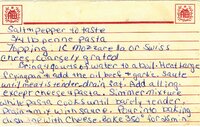 Salt + pepper to taste
3/4 lb penne pasta
Topping 1C Mozzarella or Swiss
cheese, coarsely grated
Bring 4 quarts of water to a boil. Heat large
frying pan & add the oil, beef & garlic. Saute
until meat is tender. drain fat. Add all in.
except cheese & pasta. Simmer mixture
while pasta cooks until barely tender.
Drain & mix with sauce. Pour into baking
dish top with cheese. Bake 350° for 35 min